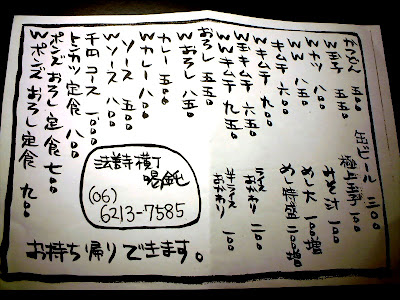 かつどん 五〇〇
W玉子 五五〇
Wカツ 八〇〇
WW 八五〇
キムチ 六〇〇
Wキムチ 九〇〇
W玉キムチ 六五〇
WWキムチ 九五〇
おろし 五五〇
Wおろし 八五〇
カレー 五〇〇
Wカレー 八〇〇
ソース 五〇〇
Wソース 八〇〇
千円コース 一〇〇〇
トンカツ定食 八〇〇
ポンズおろし定食 七〇〇
Wポンズおろし定食 九〇〇
缶ビール 三〇〇
みそ汁 一〇〇
めし大 一〇〇増
めし特盛 二〇〇増
ライスおかわり 二〇〇
半ライスおかわり 一〇〇
法善寺横丁
喝鈍
(06)
6213-7585
お持ち帰りできます。